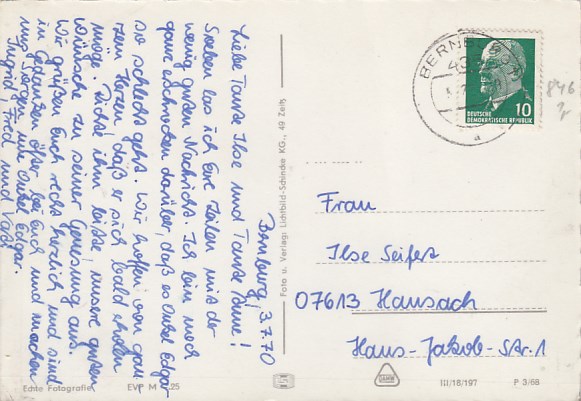 Bernburg, 3.7.70
Liebe Tante Ilse und Tante Änne!
Soeben las ich Eure Zeilen mit der
wenig guten Nachricht. Ich bin noch
ganz erschrocken darüber, daß es Onkel Edgar
so schlecht geht. Wir hoffen von gan-
zem Herzen, daß er sich bald erholen
möge. Richte ihm bitte unsere guten
Wünsche zu seiner Genesung aus.
Wir grüßen Euch recht herzlich und sind
in Gedanken öfter bei Euch und machen
uns Sorgen um Onkel Edgar.
Ingrid, Fred und
Echte Fotografie
EVP M 0.25
Foto u. Verlag: Lichtbild-Schincke KG., 49 Zeitz
BERNBURG
DEUTSCHE
DEMOKRATISCHE REPUBLIK
10
a
846
Frau
Ilse Seifert
07613 Hausach
Hans-Jakob-Str. 1
III/18/197
P 3/68